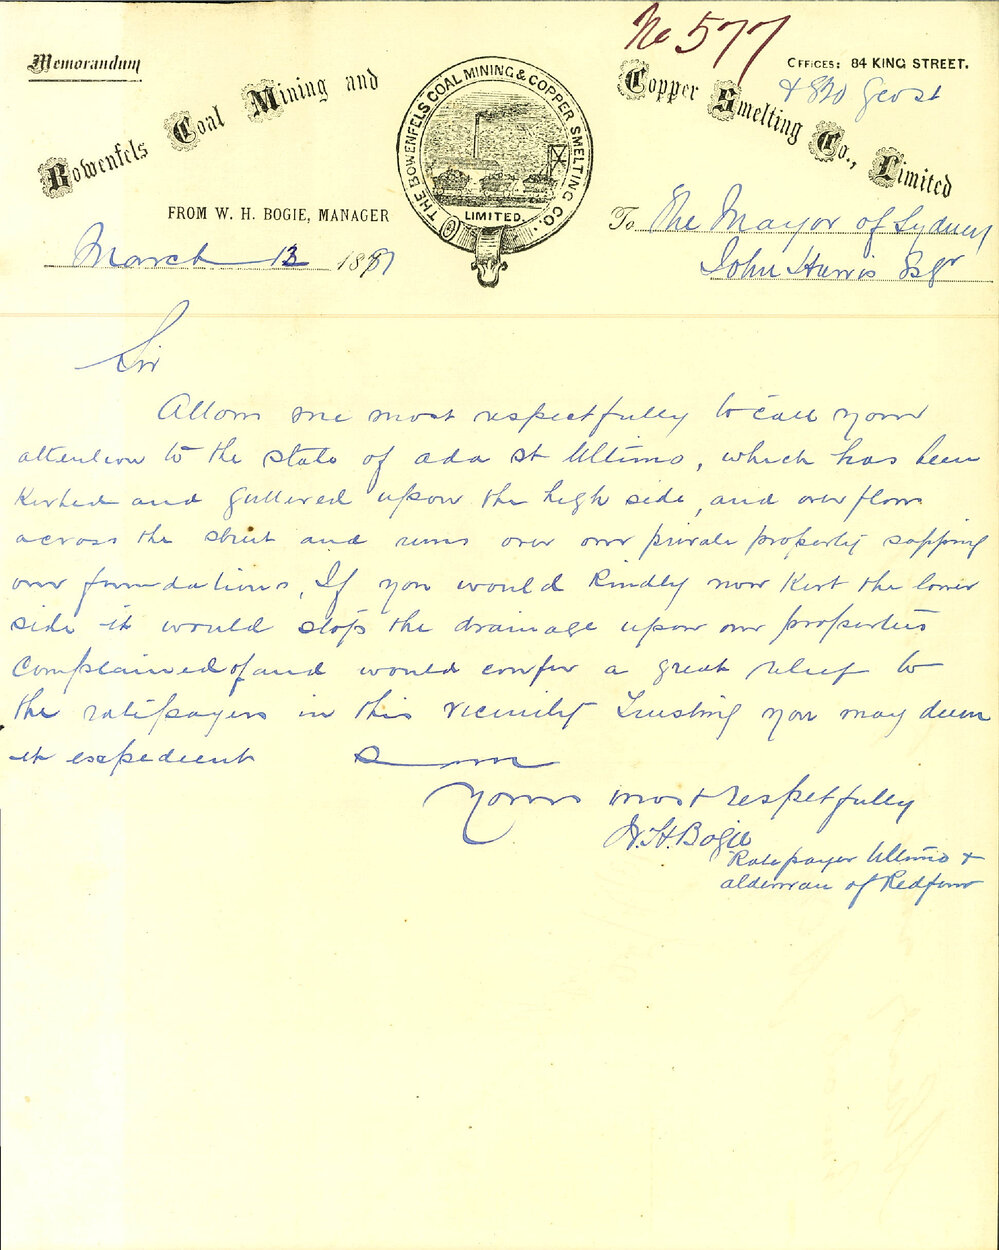 No 577
Memorandum
OFFICES: 84 KING STREET.
& 820 Geo st
Bowenfels Coal Mining and
Copper Smelting Co., Limited
THE BOWENFELS COAL MINING & COPPER SMELTING CO.
LIMITED.
FROM W. H. BOGIE, MANAGER
To The Mayor of Sydney
March 13 1881
John Harris Esqr
Sir
Allow me most respectfully to call your
attention to the state of ada st Ultimo, which has been
Kerbed and guttered upon the high side, and over flows
across the street and runs over our private property sapping
our foundations. If you would Kindly now Kerb the lower
side it would stop the drainage upon our properties
Complained of and would confer a great relief to
the ratepayers in this vicinity Trusting you may deem
it expedient
Yours most respetfully
W. H. Bogie
Ratepayer Ultimo &
alderman of Redfern